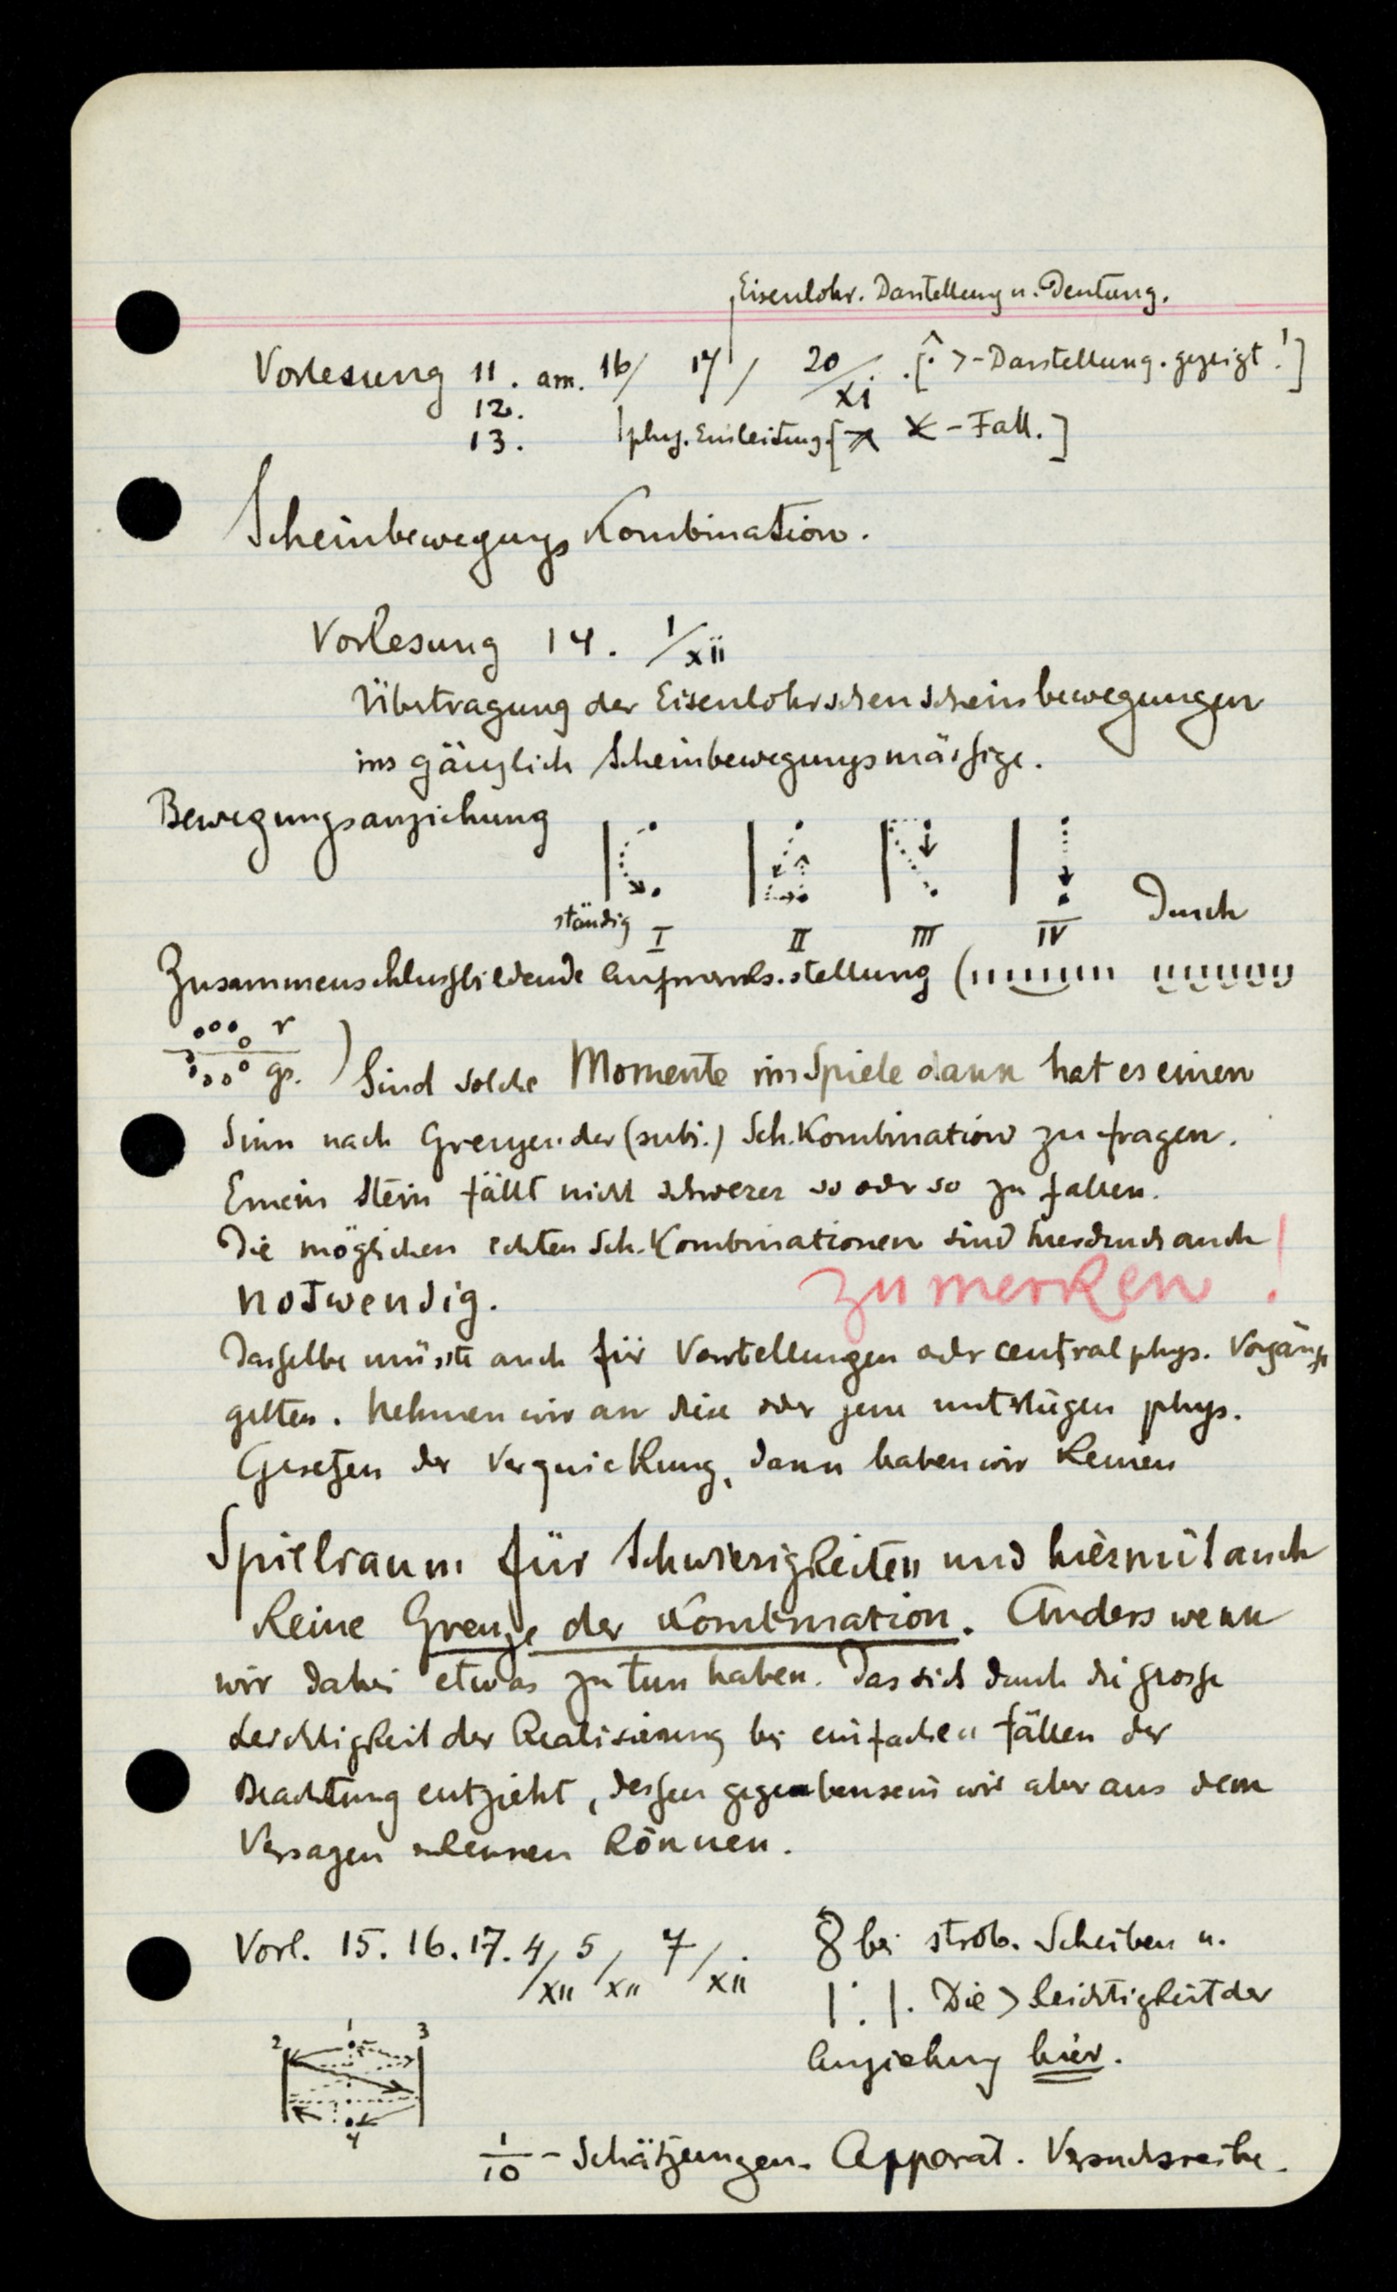 Eisenlohr. Darstellung u. Deutung.
Vorlesung 11. am. 16/ 17/ 20/XI .[ > -Darstellung. gezeigt!]
12.
13. phys. Einleitung [ -Fall.]
Scheinbewegungs Kombination.
Vorlesung 14. 1/XII
Übertragung der Eisenlohrschen Scheinbewegungen
ins gänzlich Scheinbewegungsmässige.
Bewegungsanziehung
ständig I II III IV Durch
Zusammenschlussbildende Aufmerks.stellung (
r
gs. ) Sind solche Momente im Spiele dann hat es einen
Sinn nach Grenzen der (subj.) Sch. Kombination zu fragen.
Einem Stein fällt nicht schwerer so oder so zu fallen.
Die möglichen echten Sch. Kombinationen sind hierdurch auch
notwendig. zu merken!
Dasselbe müsste auch für Vorstellungen oder central phys. Vorgänge
gelten. Nehmen wir an diese oder jene phys.
Gesetzen der Verquickung, dann haben wir keinen
Spielraum für Schwierigkeiten und hiermit auch
keine Grenze der Kombination. Anders wenn
wir dabei etwas zu tun haben. Das sich durch die grosse
Leichtigkeit der Realisierung bei einfachen Fällen der
Beachtung entzieht, dessen gegebensein wir aber aus dem
Versagen erkennen können.
Vorl. 15. 16. 17. 4/XII 5/XII 7/XII
8 bei strob. Scheiben u.
Die > Leichtigkeit der
Anziehung hier.
1 2 3 4
1/10 - Schätzungen. Apparat. Versuchsreihe.